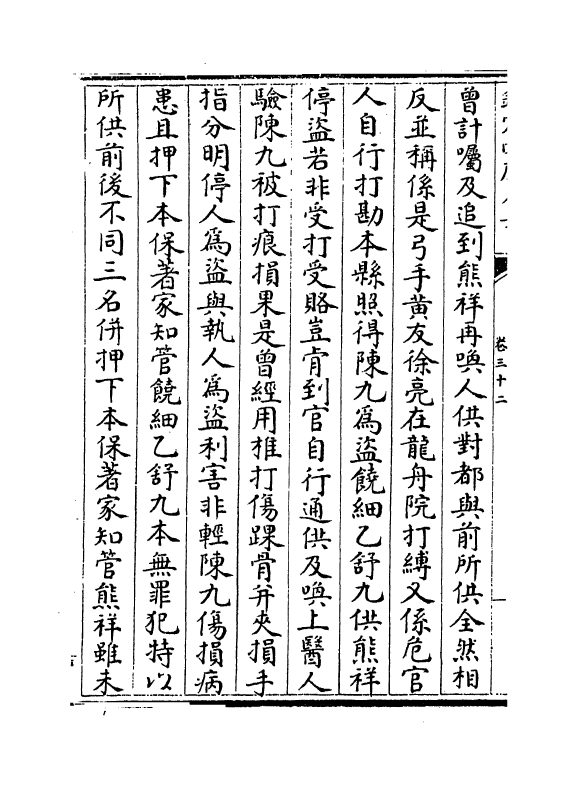 卷三十二
曾計囑及追到熊祥再喚人供對都與前所供全然相
反並稱係是弓手黄友徐亮在龍舟院打縛又係危官
人自行打勘本縣照得陳九為盜饒細乙舒九供熊祥
停盜若非受打受賂豈肯到官自行通供及喚上醫人
驗陳九被打痕損果是曾經用椎打傷踝骨并夾損手
指分明停人為盜與執人為盜利害非輕陳九傷損病
患且押下本保著家知管饒細乙舒九本無罪犯特以
所供前後不同三名併押下本保著家知管熊祥雖未